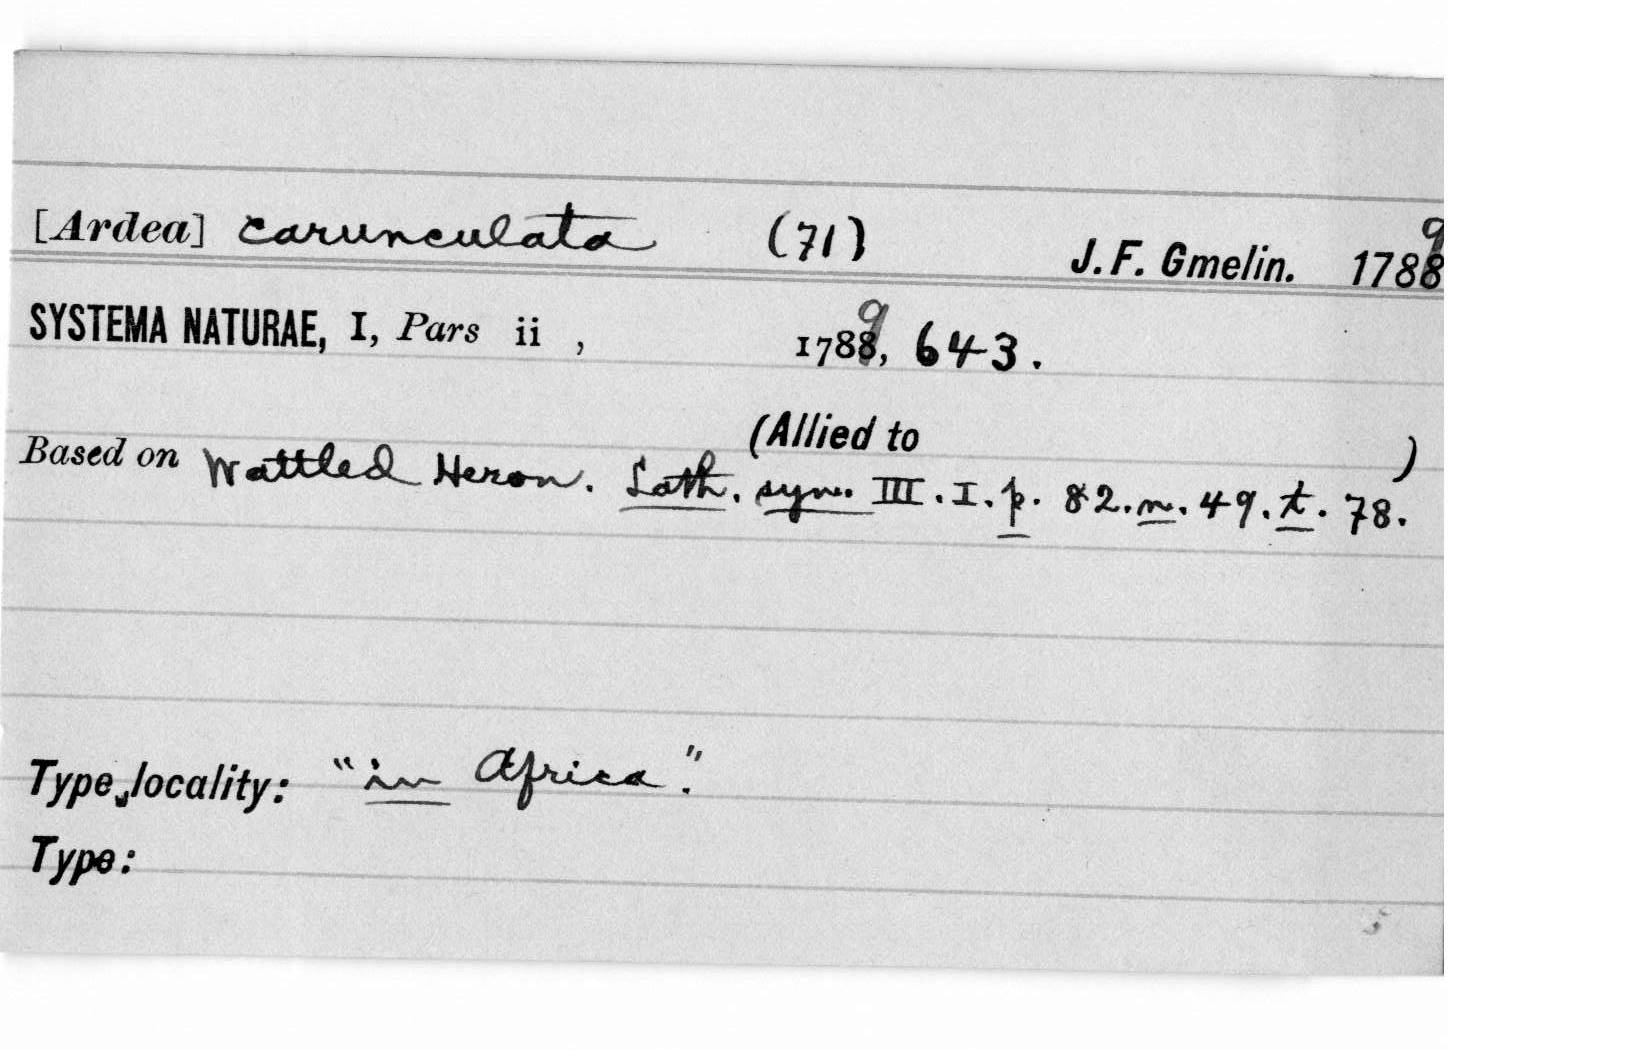 [Ardea] carunculata (71) J. F. Gmelin. 1789
SYSTEMA NATURAE, I, Pars ii , 1789, 643.
(Allied to )
Based on Wattled Heron. Lath. syn. III. I. p. 82. n. 49. t. 78.
Type locality: "in Africa".
Type: